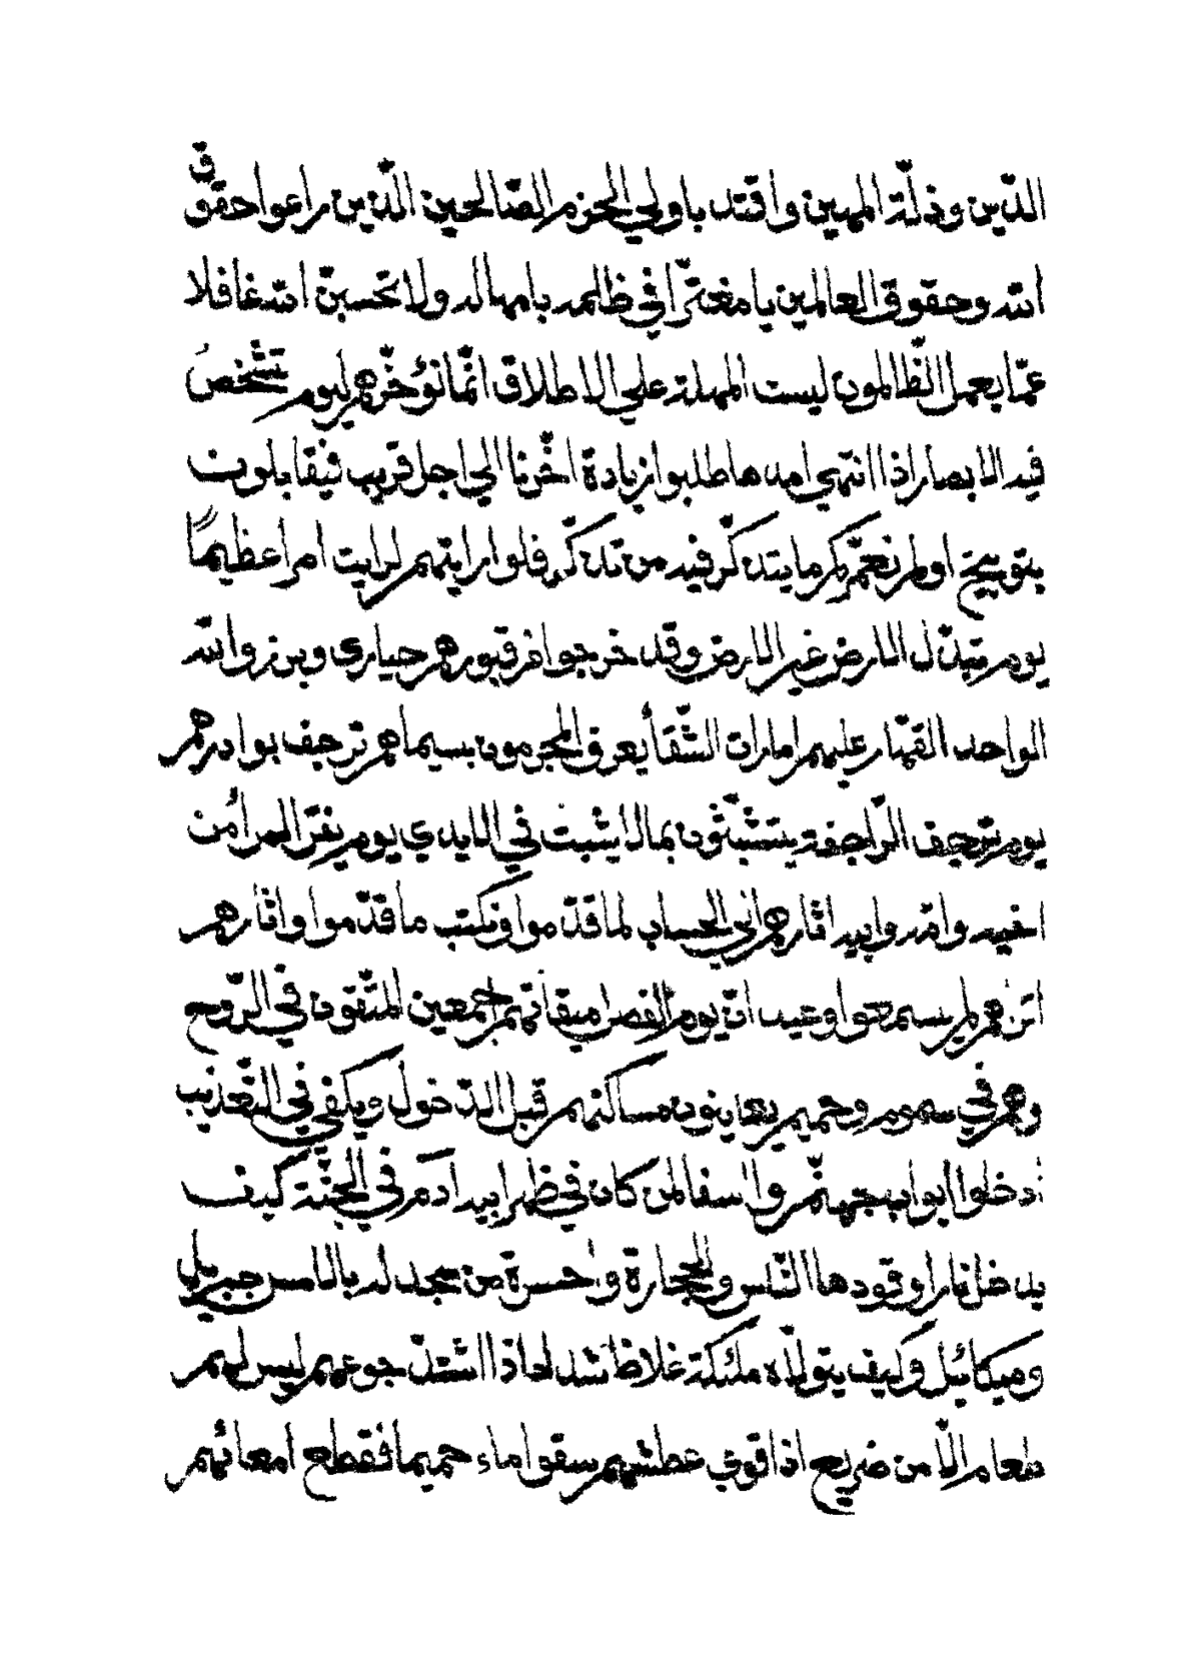 الدّين وذلّة المهين واقتد باولي الحزم الصّالحين الّذين راعوا حقوق
الله وحقوق العالمين يا مغترّا في ظلمه بامهاله ولا تحسبنّ الله غافلا
عمّا يعمل الظّالمون ليست المهلة علي الاطلاق انّما نؤخّرهم ليوم تشخص
فيه الابصار اذا انتهي امدها طلبوا زيادة اخّرنا الي اجل قريب فيقابلون
بتوبيخ اولم نعمّركم ما يتذكّر فيه من تذكّر فلو رايتهم لرايت امرا عظيمًا
يوم تبدّل الارض غير الارض وقد خرجوا من قبورهم حياري وبرزوا لله
الواحد القهّار عليهم امارات الشّقأ يعرف المجرمون بسيماهم ترجف بوادرهم
يوم ترجف الرّاجفة يتشبّثون بما لا يثبت في الايدي يوم يفرّ المرأ من
اخيه وامّه وابيه اثارهم الي الحساب لما قدّموا ونكتب ما قدّموا واثارهم
اتراهم لم يسمعوا وعيد انّ يوم الفصل ميقاتهم اجمعين المتّقون في الرّوح
وهم في سموم وحميم يعاينون مساكنهم قبل الدّخول ويكفي في التّعذيب
ادخلوا ابواب جهنّم وا اسفا لمن كان في ظهر ابيه آدم في الجنّة كيف
يدخل نارا وقودها النّاس والحجارة وا حسرة من سجد له بالامس جبريل
وميكائيل وكيف يتولّاه ملئكة غلاظ شداد اذا اشتدّ جوعهم ليس لهم
طعام الّا من ضريع اذا قوي عطشهم سقوا ماء حميما فقطع امعائهم